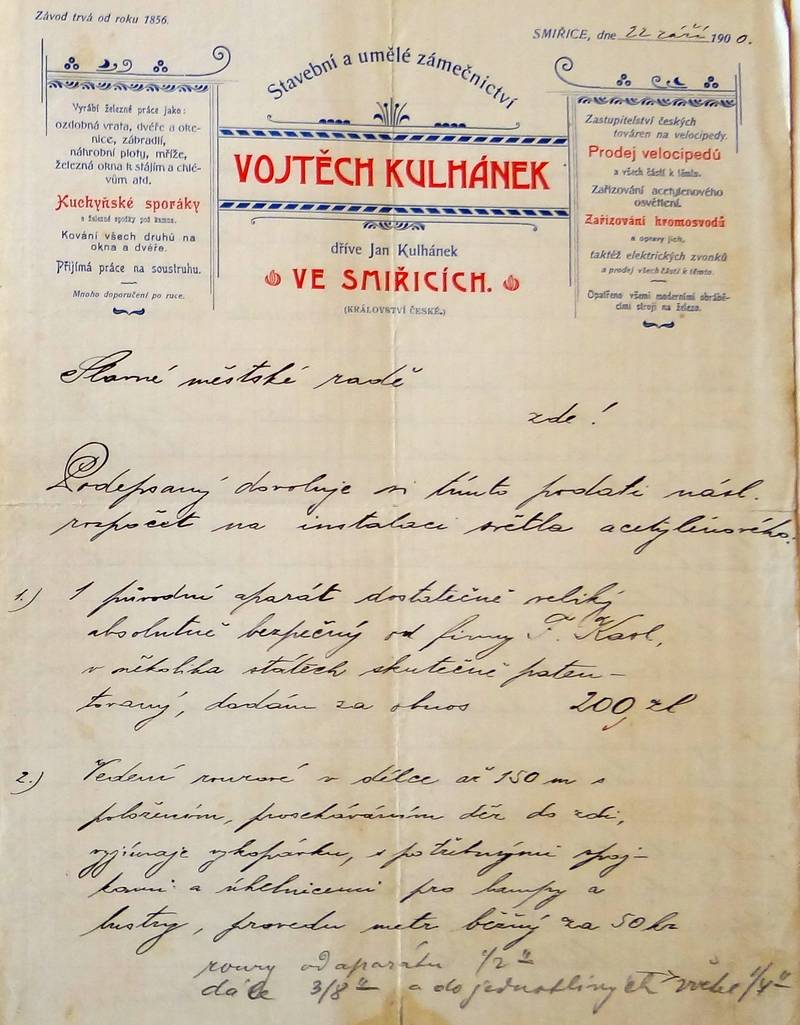 Závod trvá od roku 1856.
SMIŘICE, dne 22 září 1900.
Vyrábí železné práce jako:
ozdobná vrata, dvéře a oke-
nice, zábradlí,
náhrobní ploty, mříže,
železná okna k stájím a chlé-
vům atd.
Kuchyňské sporáky
a železné spodky pod kamna.
Kování všech druhů na
okna a dvéře.
Přijímá práce na soustruhu.
Mnoho doporučení po ruce.
Stavební a umělé zámečnictví
VOJTĚCH KULHÁNEK
dříve Jan Kulhánek
VE SMIŘICÍCH.
(KRÁLOVSTVÍ ČESKÉ.)
Zastupitelství českých
továren na velocipedy.
Prodej velocipedů
a všech částí k těmto.
Zařizování acetylenového
osvětlení.
Zařizování hromosvodů
a opravy jich,
taktéž elektrických zvonků
a prodej všech částí k těmto.
Opatřeno všemi moderními obrábě-
cími stroji na železo.
Slavné městské radě
zde!
Podepsaný dovoluje si tímto podati násl.
rozpočet na instalaci světla acetylénového.
1.) 1 původní aparát dostatečně veliký
absolutně bezpečný od firmy F. Karl,
v několika státech skutečně paten-
tovaný, dodám za obnos 200 zl
2.) Vedení rourové v délce až 150 m s
položením, prosekáváním děr do zdi,
vyjímaje vykopávku, s potřebnými spoj-
kami a úhelnicemi pro lampy a
lustry, provedu metr běžný za 50 kr
roury od aparátu 1/2"
dále 3/8" a do jednotlivých 1/4"